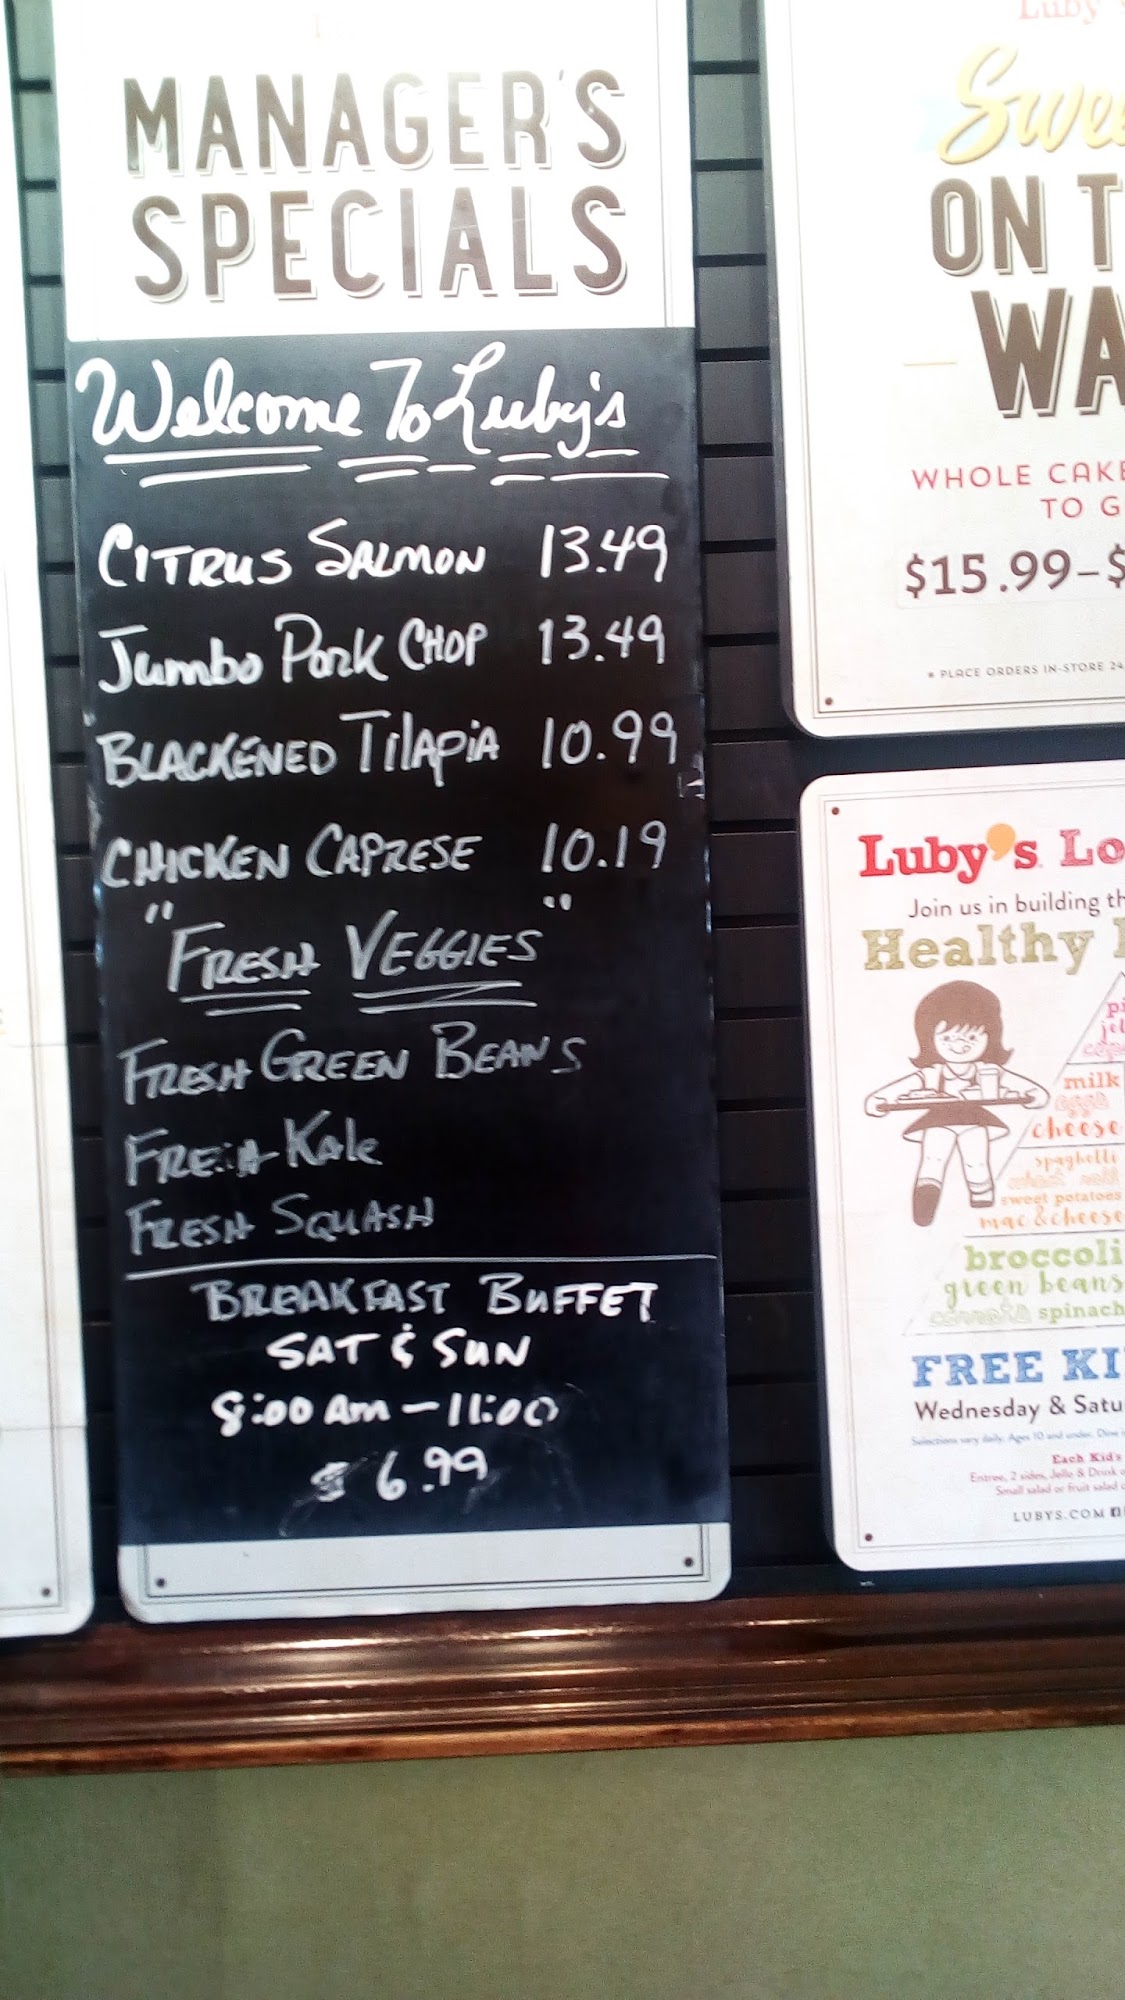 MANAGER'S
SPECIALS
Welcome To Luby's
CITRUS SALMON 13.49
Jumbo Pork CHOP 13.49
BLACKENED TILAPIA 10.99
CHICKEN CAPRESE 10.19
"FRESH VEGGIES"
FRESH GREEN BEANS
FRESH Kale
FRESH SQUASH
BREAKFAST BUFFET
SAT & SUN
8:00 Am - 11:00
$ 6.99
Luby's
Swee
ON T
WA
WHOLE CAKE
TO G
$15.99-$
* PLACE ORDERS IN-STORE 24
Luby's Lo
Join us in building th
Healthy
pi
jel
milk
eggs
cheese
spaghetti
wheat roll
sweet potatoes
mac & cheese
broccoli
green beans
carrots spinach
FREE KI
Wednesday & Satu
Selections vary daily. Ages 10 and under. Dine
Each Kid's
Entree, 2 sides, Jello & Drink
Small salad or fruit salad
LUBYS.COM